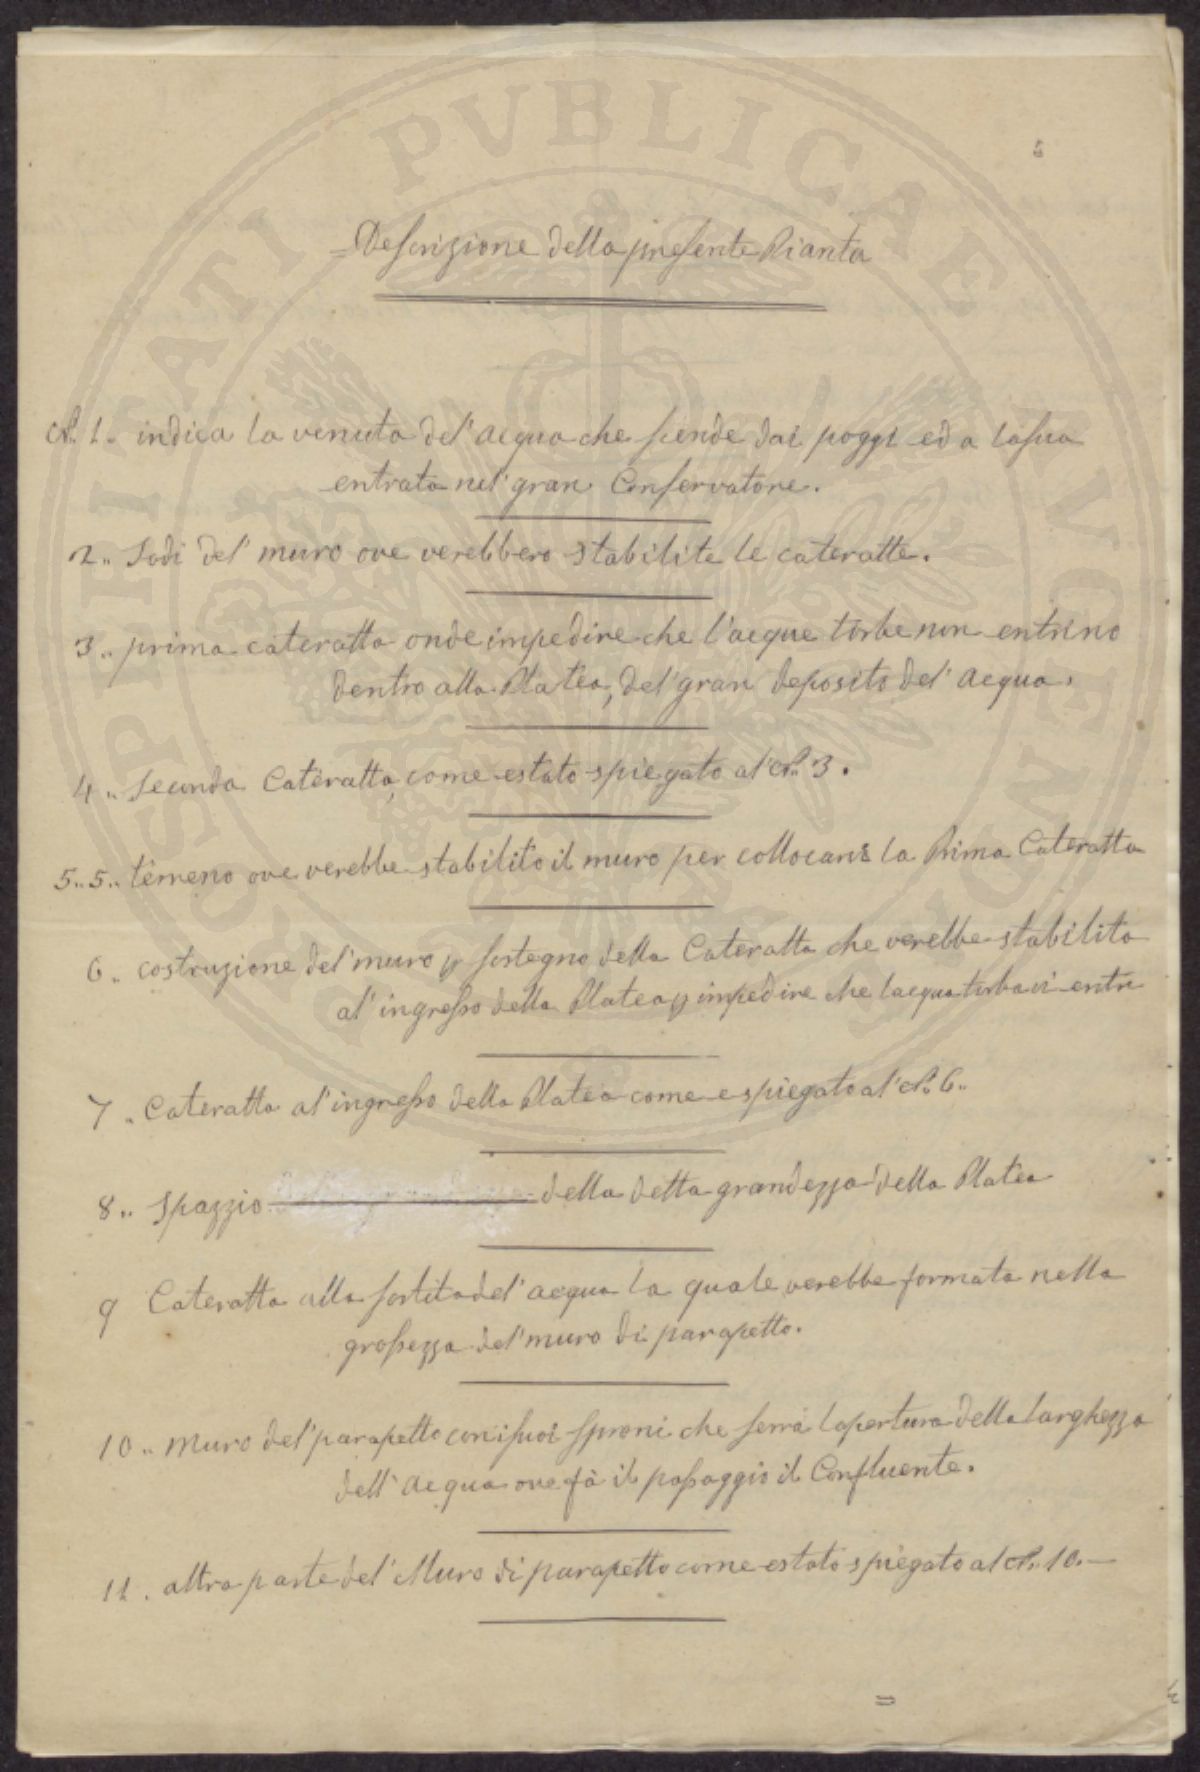 Descrizione della presente Pianta
N.º 1.. indica la venuta del' acqua che sciende dai poggi ed a la sua
entrata nel' gran Conservatore.
2.. Sodi del' muro ove verebbero stabilite le cateratte.
3.. prima cateratta onde impedire che l'acque torbe non entrino
dentro alla Platea, del' gran deposito del' acqua.
4.. Seconda Cateratta, come estato spiegato al' N.º 3.
5.. 5.. terreno ove verebbe stabilito il muro per collocarvi la Prima Cateratta
6.. costruzione del' muro p sostegno della Cateratta che verebbe stabilita
al' ingresso della Platea p impedire che lacqua torba vi entri
7.. Cateratta al' ingresso della Platea come e spiegato al' N.º 6..
8.. Spazzio della detta grandezza della Platea
9 Cateratta alla sortita del' acqua la quale verebbe formata nella
grossezza del' muro di parapetto.
10.. muro del' parapetto con i suoi sproni che serra lapertura della larghezza
dell' acqua ove fà il passaggio il Confluente.
11. altra parte del' Muro di parapetto come estato spiegato al N.º 10.—
=
PROSPERITATI PVBLICAE AVGENDAE